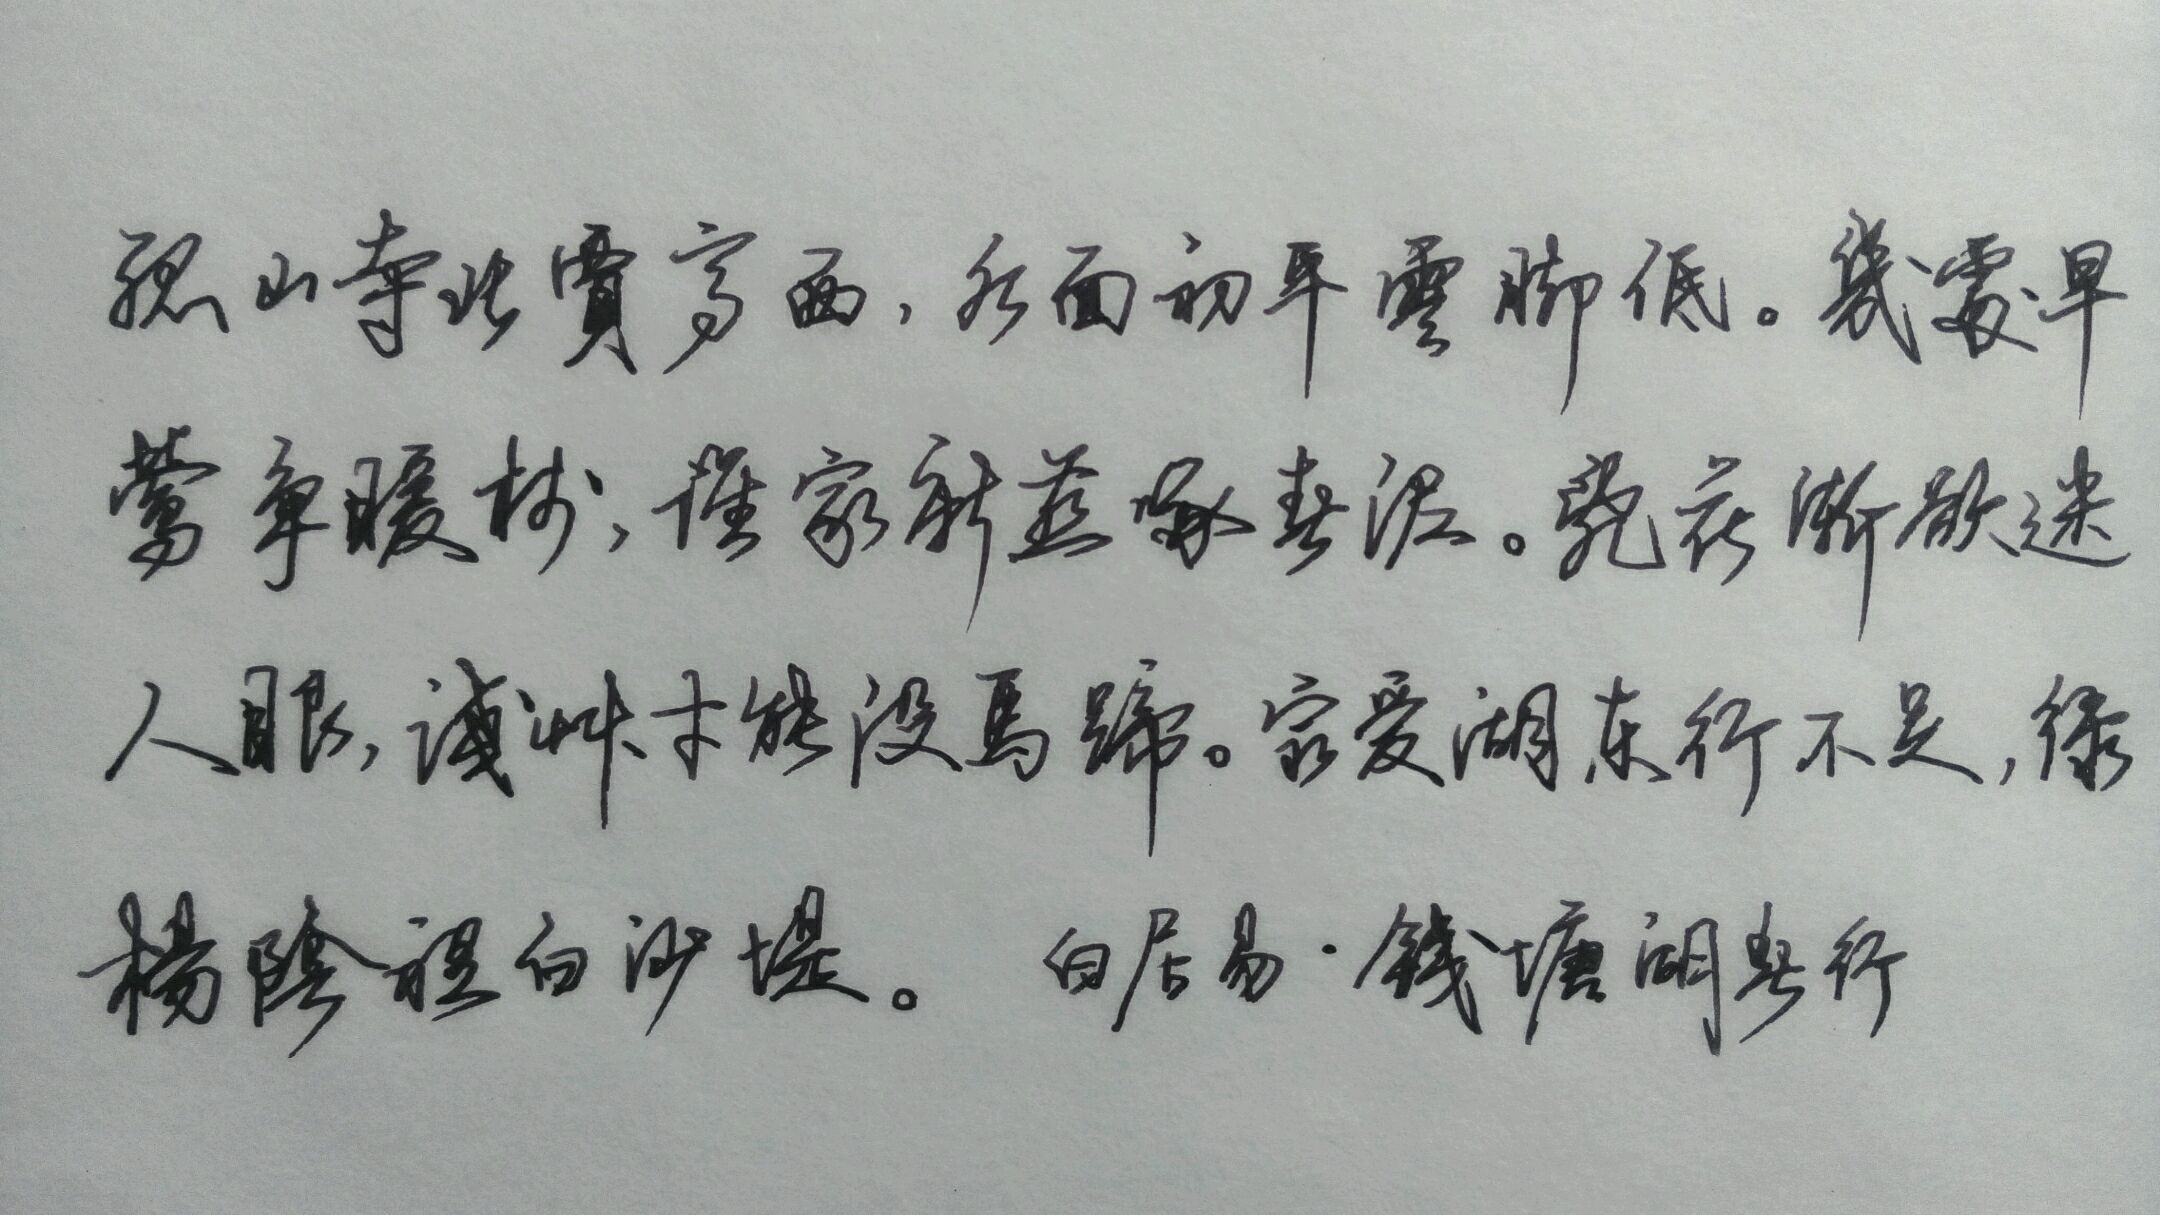 孤山寺北賈亭西，水面初平雲脚低。幾處早
鶯爭暖树，誰家新燕啄春泥。亂花漸欲迷
人眼，淺草才能沒馬蹄。最爱湖东行不足，緑
楊陰裡白沙堤。 白居易·錢塘湖春行